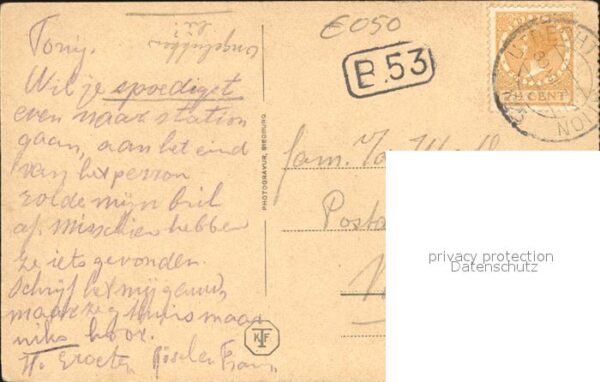 Tony.
ongelukken
Wil je spoedigst
even naar station
gaan, aan het eind
van het perron
rolde mijn bril
af. Misschien hebben
ze iets gevonden.
Schrijf het mij
maar zeg thuis maar
niks hoor.
Groeten
€050
B.53
UTRECHT
7½ CENT
PHOTOGRAVUR, BREDBURG.
fam. V.d.
Posts
KTF
privacy protection
Datenschutz